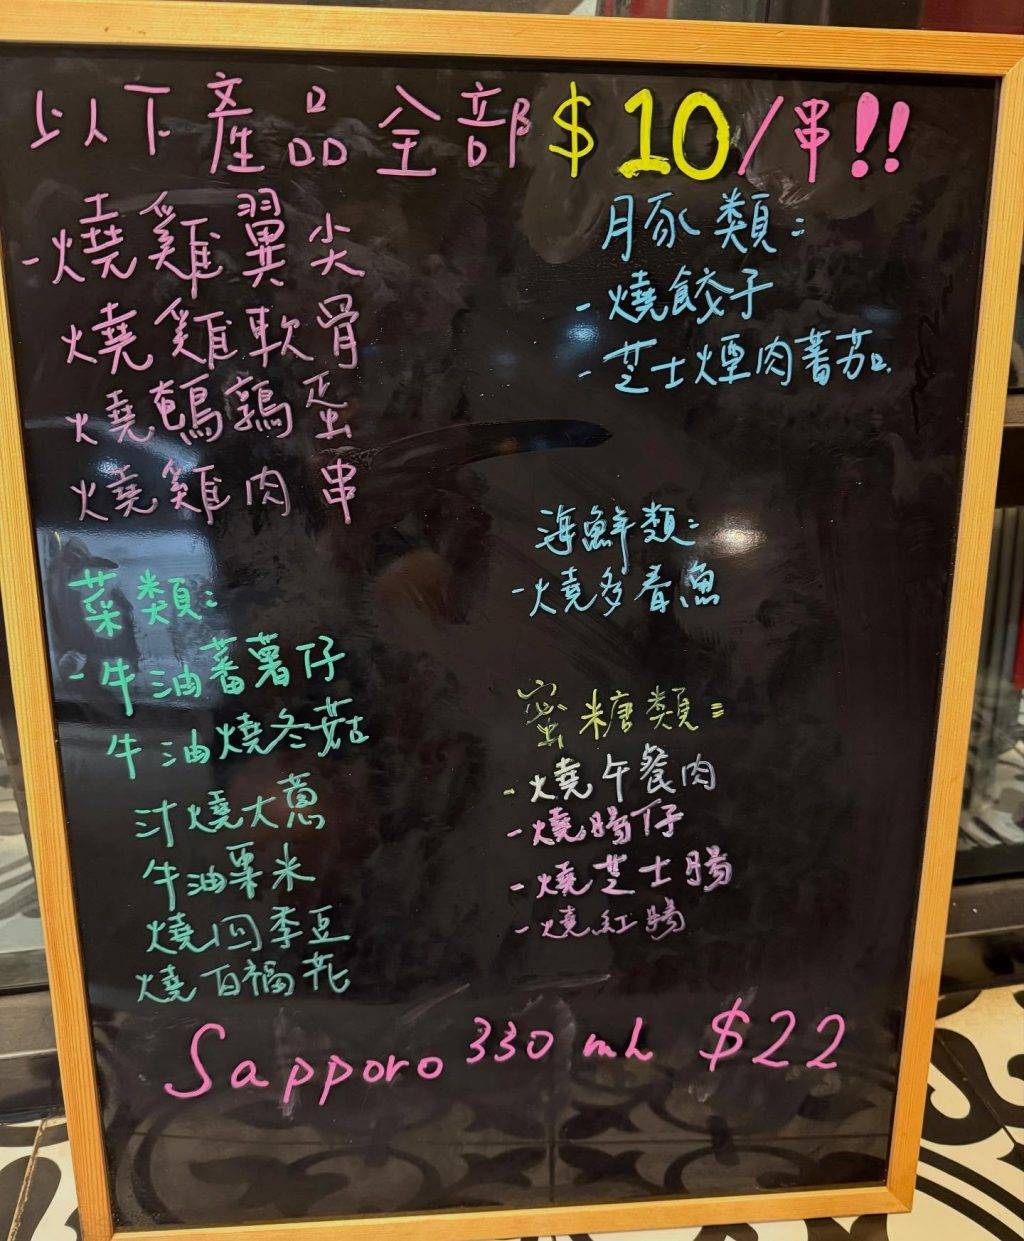 以下產品全部$10/串!!
-燒雞翼尖
燒雞軟骨
燒鵪鶉蛋
燒雞肉串
菜類:
-牛油蕃薯仔
牛油燒冬菇
汁燒大蔥
牛油粟米
燒四季豆
燒百福花
月豕類:
-燒餃子
-芝士煙肉蕃茄
海鮮類:
-燒多春魚
蜜糖類:
-燒午餐肉
-燒腸仔
-燒芝士腸
-燒紅腸
Sapporo 330 mL $22